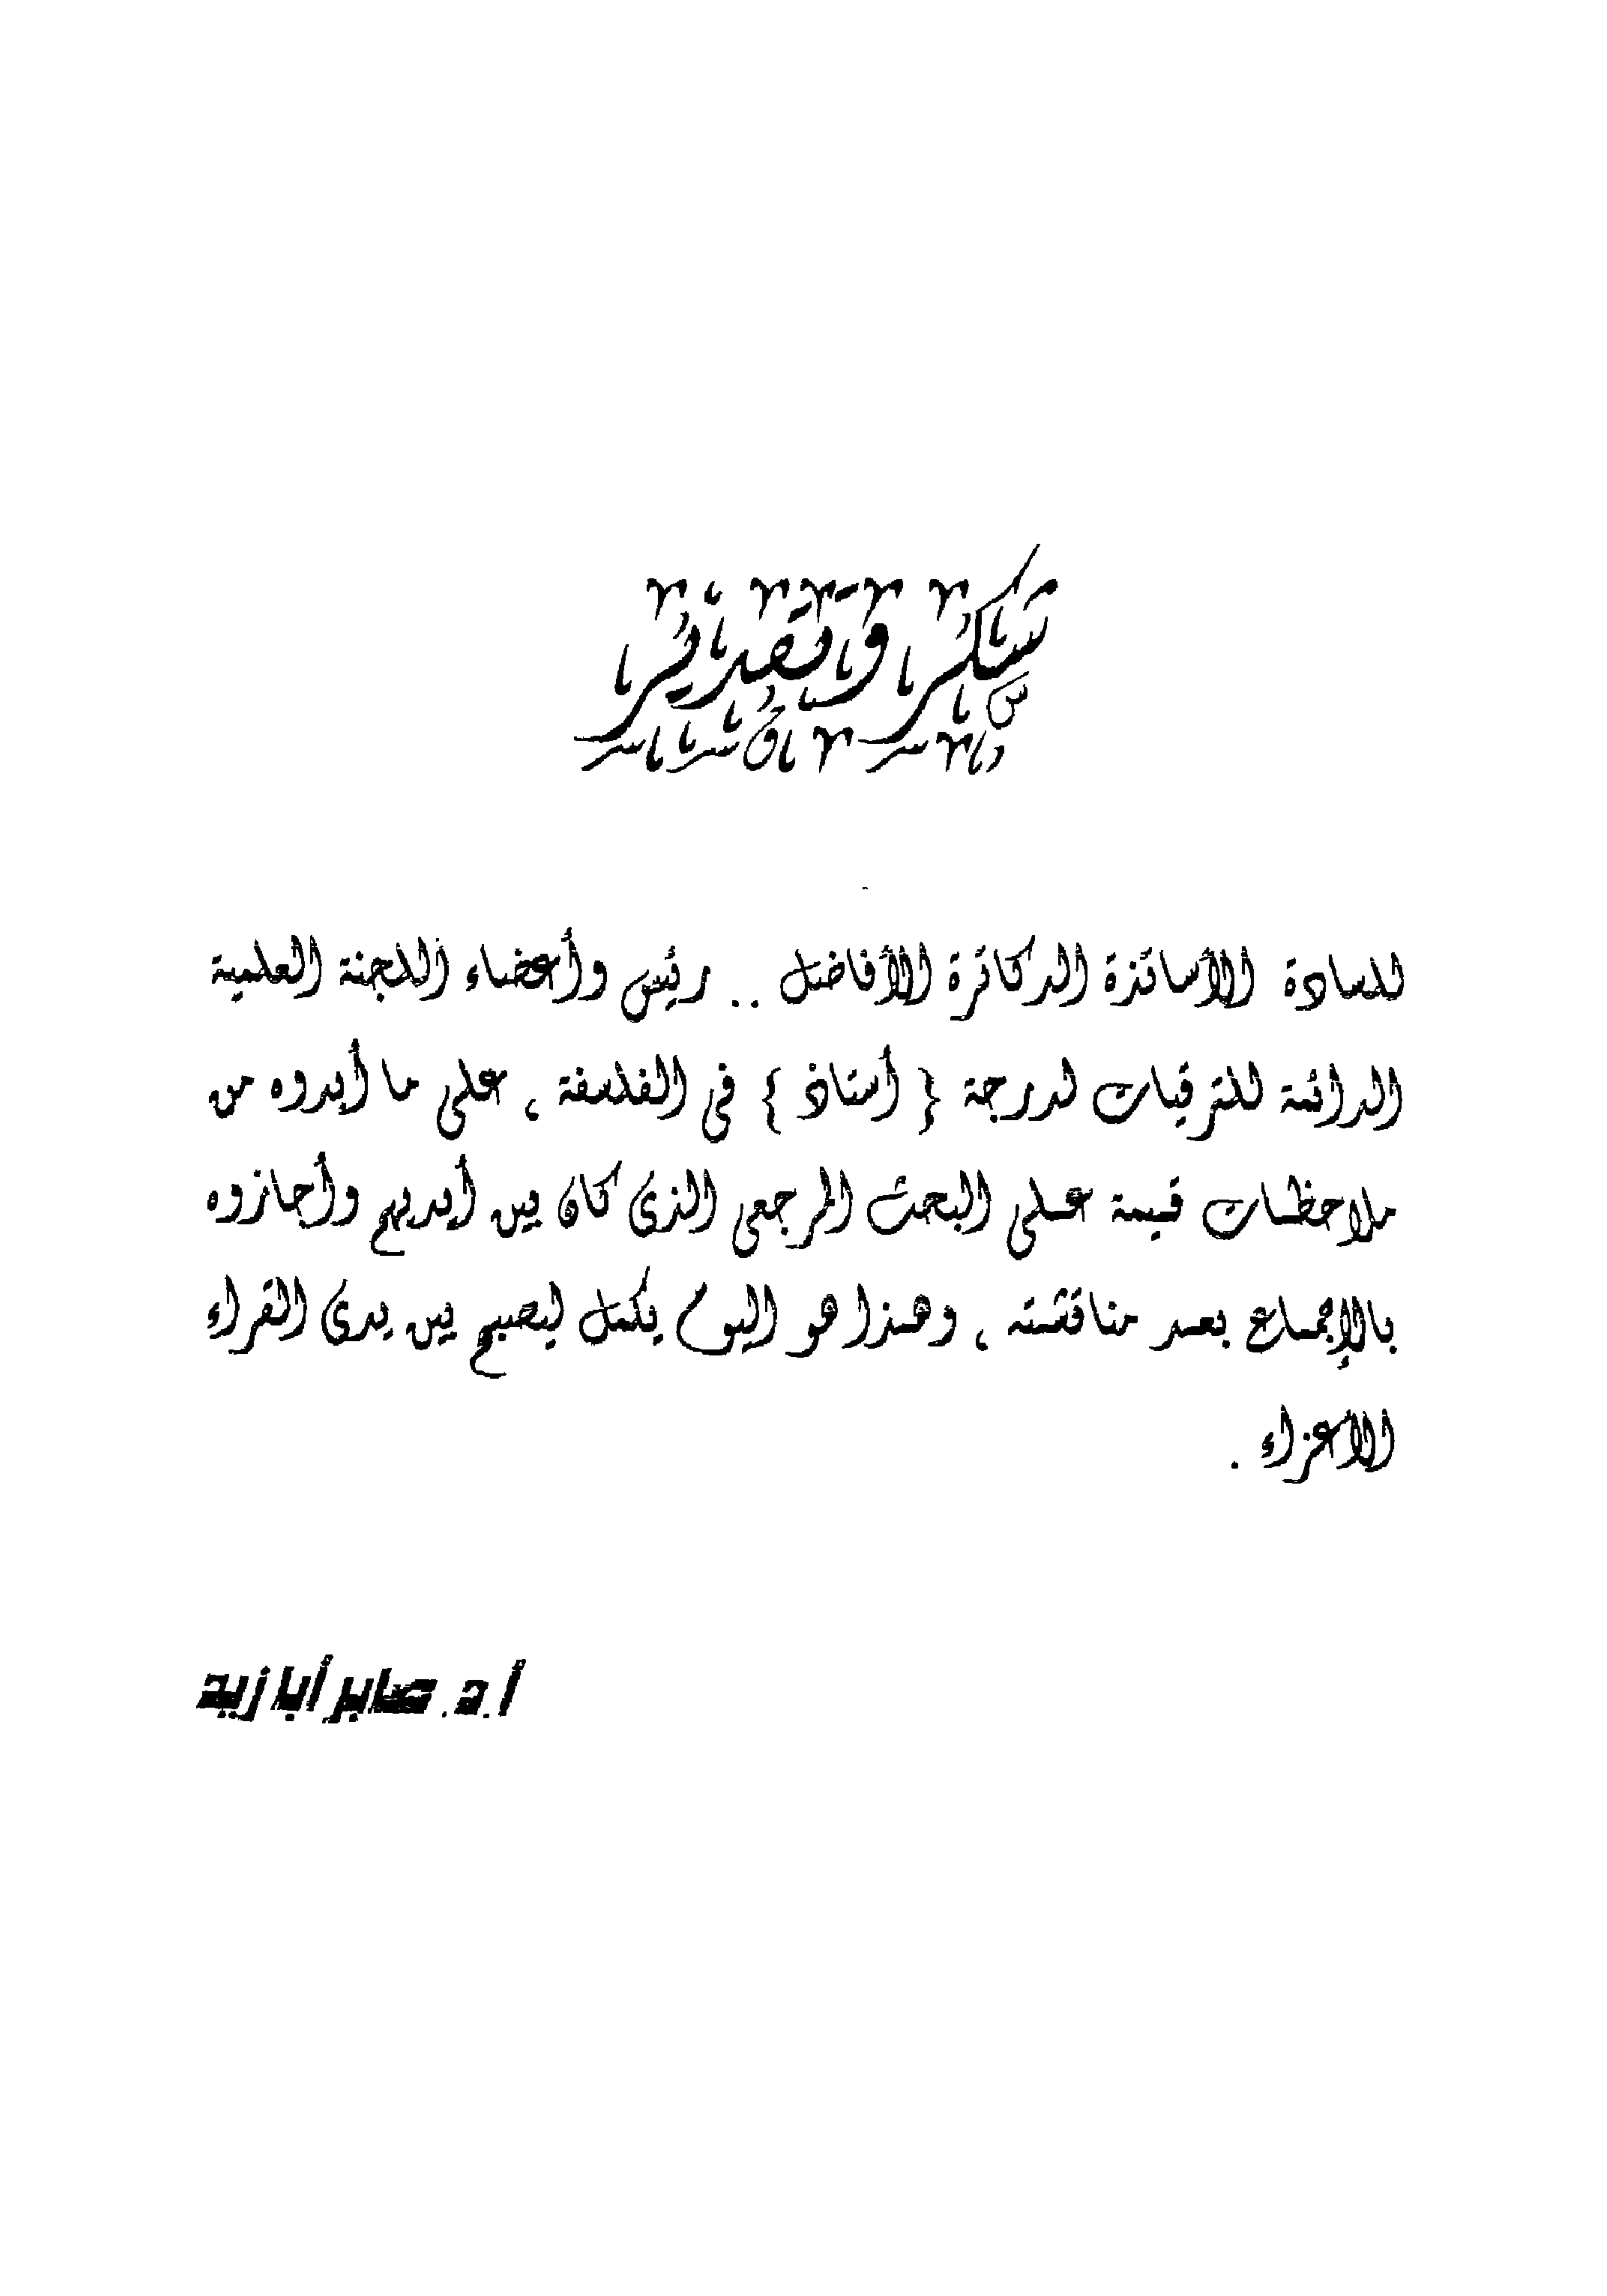 شكر وتقدير
للسادة الأساتذة الدكاترة الأفاضل .. رئيس وأعضاء اللجنة العلمية
الدائمة للترقيات لدرجة { أستاذ } فى الفلسفة ، على ما أبدوه من
ملاحظات قيمة على البحث المرجعى الذى كان بين أيديهم وأجازوه
بالإجماع بعد مناقشته ، وهذا هو اليوم يكمل ليصبح بين يدى القراء
الأعزاء .
أ.د. صابر أبا زيد